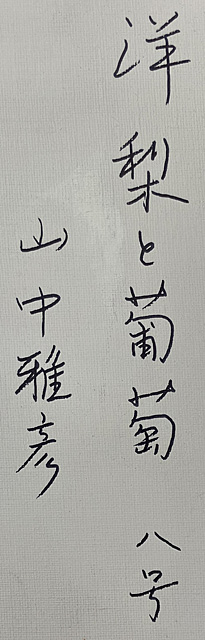 洋梨と葡萄 八号
山中雅彦